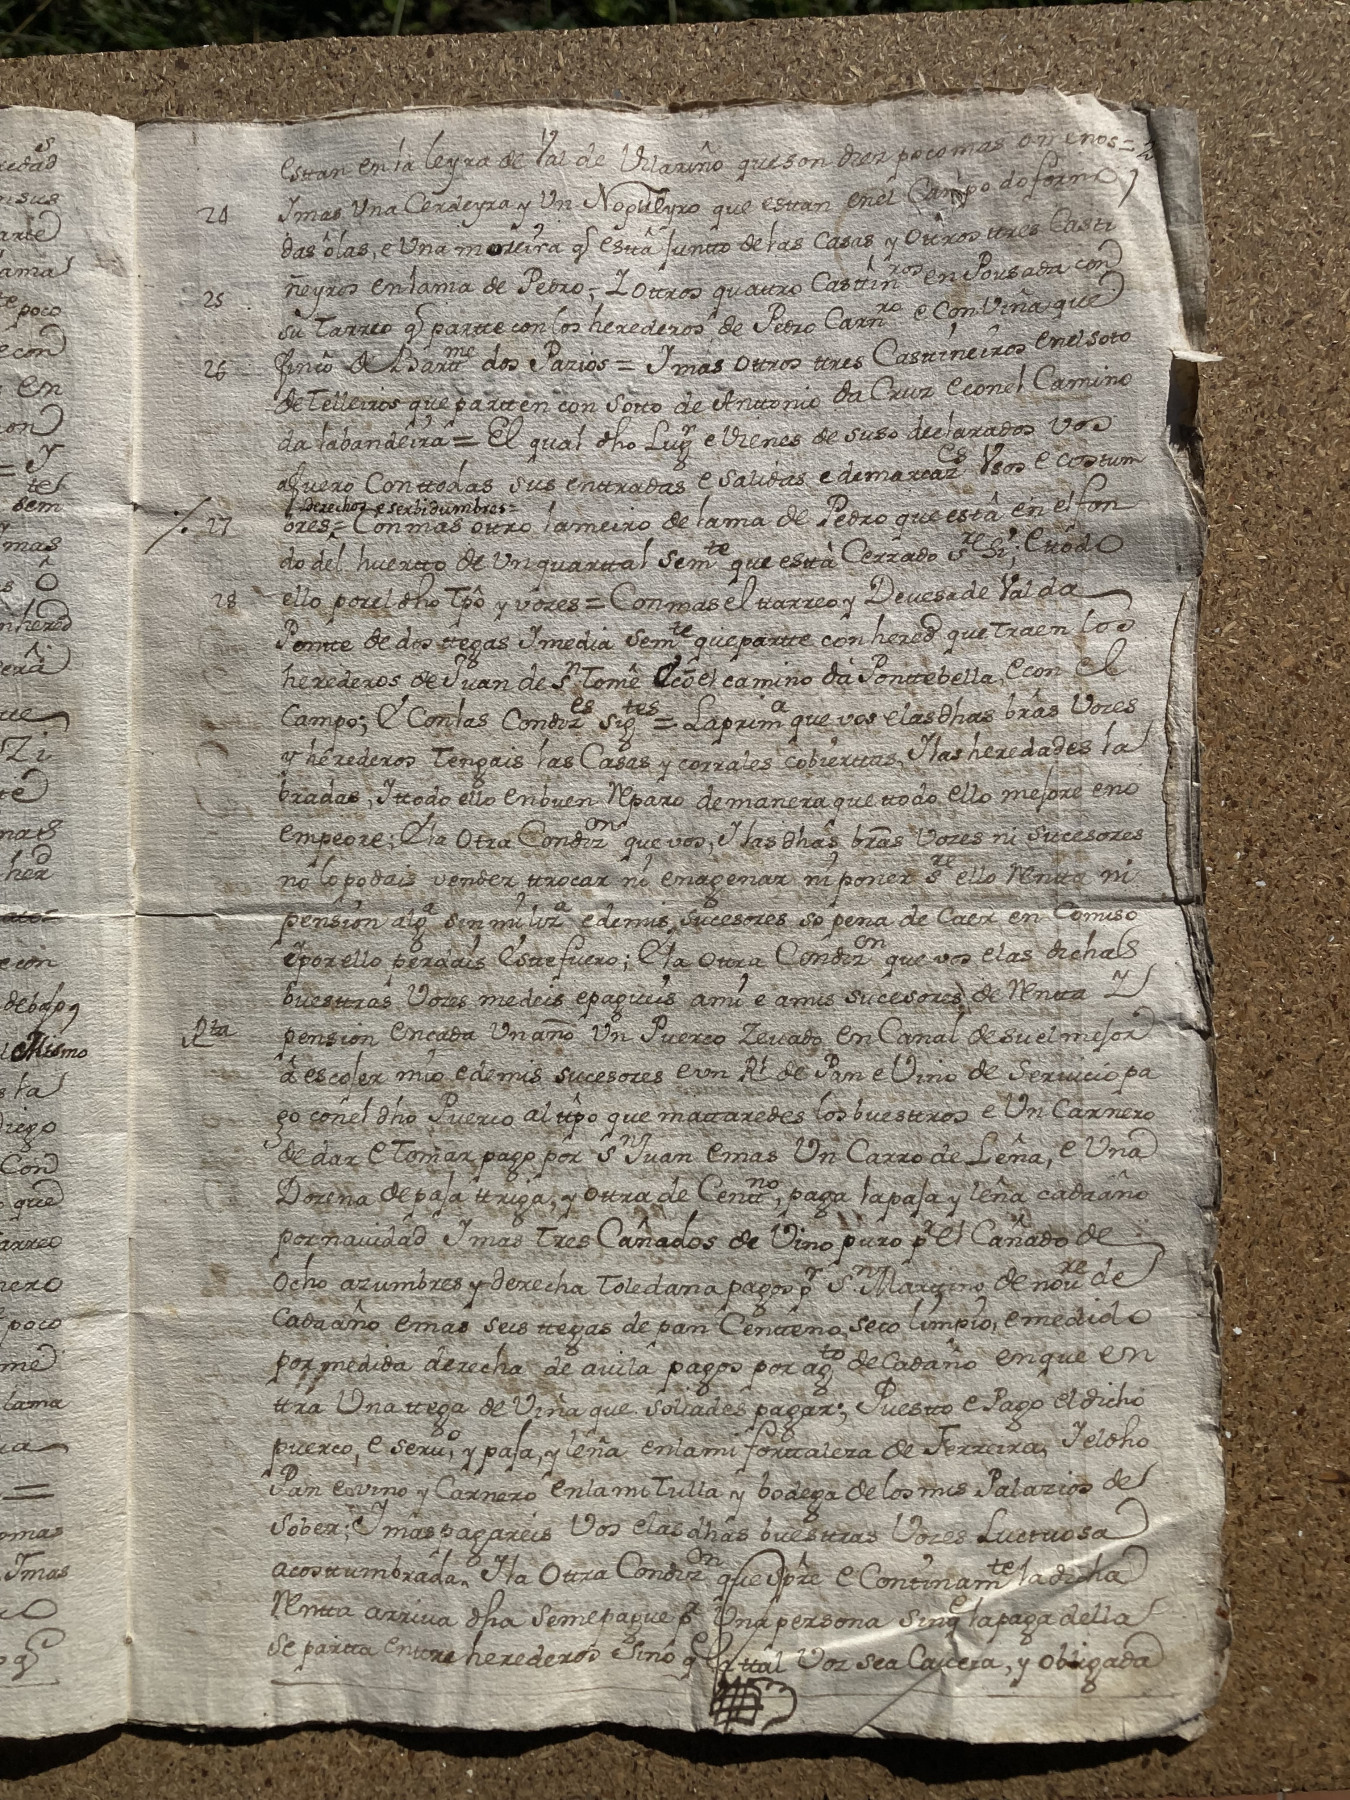 estan en la leyra de Val de Vilariño que son diez poco mas o menos =
24 Y mas Una Cerdeyra y Un Nogueyro que estan en el Campo do forno
das ôlas, e Una moreira q̃ está junto de las Casas y otros tres Casti
ñeyros en lama de Pedro; Y otros quatro Castin.ros en Pousada con
25 su tarreo q̃ partte con los herederos de Pedro Carn.ro e con Viña que
26 fincô de Bartt.me dos Pazios = Y mas otros tres Castiñeiros en el soto
de Telleiros que partten con Sotto de Anttonio da Cruz e con el Camino
da labandeira = El qual dho Lug.r e Vienes de suso declarados vos
afuero Con ttodas sus enttradas e salidas e demarcaz.es Usos e costum
derechos e serbidumbres =
27 bres = Con mas ottro lameiro de lama de Pedro que está en el fon
do del huertto de Un quarttal sem.te que está Cerrado s.re si; E ttodo
28 ello por el dho tpô y vozes = Con mas el ttarreo y Devesa de Val da
Pontte de dos ttegas Y media Sem.te que partte con hered.d que traen los
herederos de Juan de S.n Tomê e cō el camino da Ponttebella, e con el
Campo; E Con las Condiz.es sig.tes = La prim.a que vos e las dhas brâs Vozes
y herederos tengais las Casas y corrales cobierttas, Y las heredades la
bradas, Y ttodo ello en buen Reparo de manera que ttodo ello mejore e no
empeore; E la otra Condiz.on que vos, Y las dhas brâs Vozes ni sucesores
no lo podais vender ttrocar ni enagenar ni poner s.re ello Rentta ni
pension alg.a sin mi liz.a e de mis sucesores so pena de Caer en Comiso
e por ello perdais este fuero; E la ottra Condiz.on que vos e las dichas
buesttras Vozes me deis e pagueis a mi e a mis sucesores de Rentta Y
Rta pension en cada Un año Un Puerco Zevado en Canal de su el mejor
â escojer mio e de mis sucesores e un Rl de Pan e Vino de Servicio pa
go con el dho Puerco al ttpo que mattaredes los buesttros e Un Carnero
de dar e tomar pago por S.n Juan e mas Un Carro de Leña, e Una
Dozena de paja ttriga, y ottra de Centt.no, paga la paja y leña cada año
por navidâd Y mas tres Cañados de Vino puro p.r el Cañado de
ocho azumbres y derecha Toledana pagos p.r S.n Martino de nov.re de
Cada año e mas seis ttegas de pan Centeno, seco limpio, e medido
por medida derecha de avila pagos por ag.to de Cada año en que en
ttra Una ttega de Viña que soliades pagar; Puestto e Pago el dicho
puerco, e serv.o, y paja, y leña en la mi forttaleza de Ferreira, Y el dho
Pan e vino y Carnero en la mi Tulla y bodega de los mis Palazios de
Sober; Y mas pagareis Vos e las dhas buesttras Vozes Luctuosa
acosttumbrada. Y la Ottra Condiz.on que Spre e Continam.te la dicha
Rentta arriva dha se me pague p.r Una persona sin q̃ la paga della
se partta enttre herederos Sino q̃ la ttal Voz sea Cavecera, y obligada